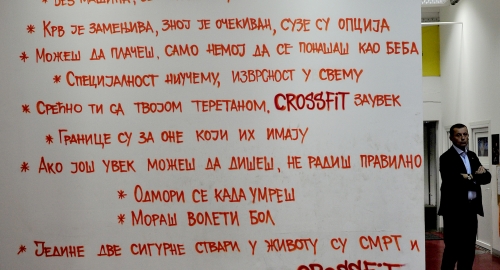 * БЕЗ МАШИНА,
* КРВ ЈЕ ЗАМЕЊИВА, ЗНОЈ ЈЕ ОЧЕКИВАН, СУЗЕ СУ ОПЦИЈА
* МОЖЕШ ДА ПЛАЧЕШ, САМО НЕМОЈ ДА СЕ ПОНАШАШ КАО БЕБА
* СПЕЦИЈАЛНОСТ НИУЧЕМУ, ИЗВРСНОСТ У СВЕМУ
* СРЕЋНО ТИ СА ТВОЈОМ ТЕРЕТАНОМ, CROSSFIT ЗАУВЕК
* ГРАНИЦЕ СУ ЗА ОНЕ КОЈИ ИХ ИМАЈУ
* АКО ЈОШ УВЕК МОЖЕШ ДА ДИШЕШ, НЕ РАДИШ ПРАВИЛНО
* ОДМОРИ СЕ КАДА УМРЕШ
* МОРАШ ВОЛЕТИ БОЛ
* ЈЕДИНЕ ДВЕ СИГУРНЕ СТВАРИ У ЖИВОТУ СУ СМРТ И
CROSSFIT